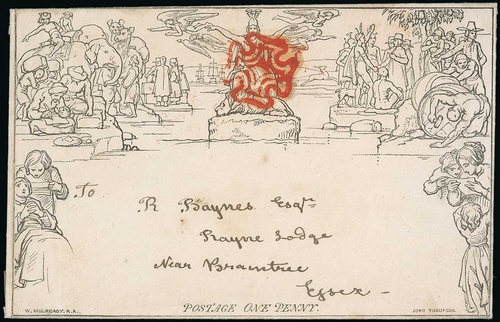 To
R Haynes Esqre
Rayne Lodge
Near Braintree
Essex
POSTAGE ONE PENNY.
W. MULREADY, R.A.
JOHN THOMPSON.